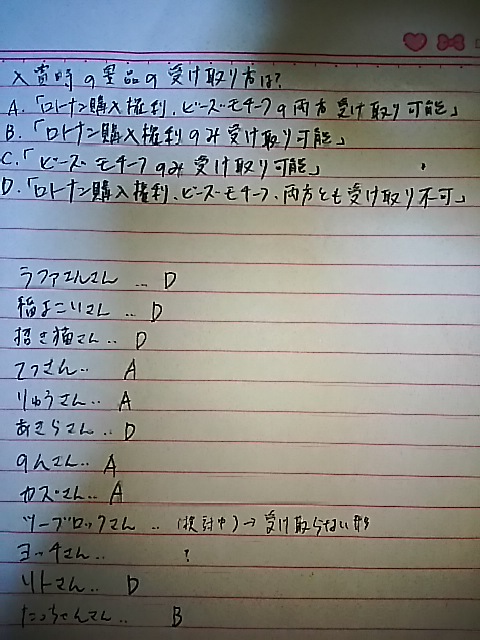 入賞時の景品の受け取り方は?
A.「ロトナン購入権利、ビーズモチーフの両方受け取り可能」
B.「ロトナン購入権利のみ受け取り可能」
C.「ビーズモチーフのみ受け取り可能」
D.「ロトナン購入権利、ビーズモチーフ、両方とも受け取り不可」
ラファエルさん … D
稲よこいさん ‥ D
招き猫さん ‥ D
てつさん‥ A
りゅうさん‥ A
あきらさん‥ D
のんさん‥ A
カズさん‥ A
ツーブロックさん ‥ (検討中)→受け取らない形
ヨッチさん‥ ?
リトさん‥ D
たっちゃんさん‥ B